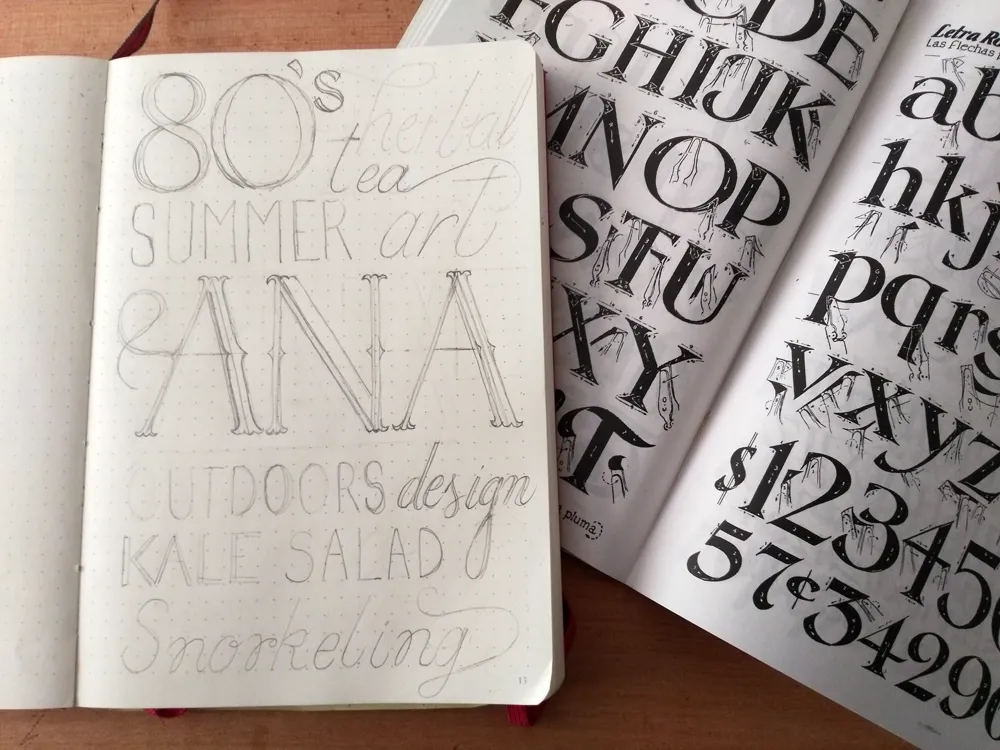 80's herbal
tea
SUMMER art
& ANA
OUTDOORS design
KALE SALAD
Snorkeling
13
DE
FGHIJK
NOP
STFU
XY
T
pluma
Letra Ro
Las Flechas
ab
hkj
pqrs
vxyz
$12345
57¢34290